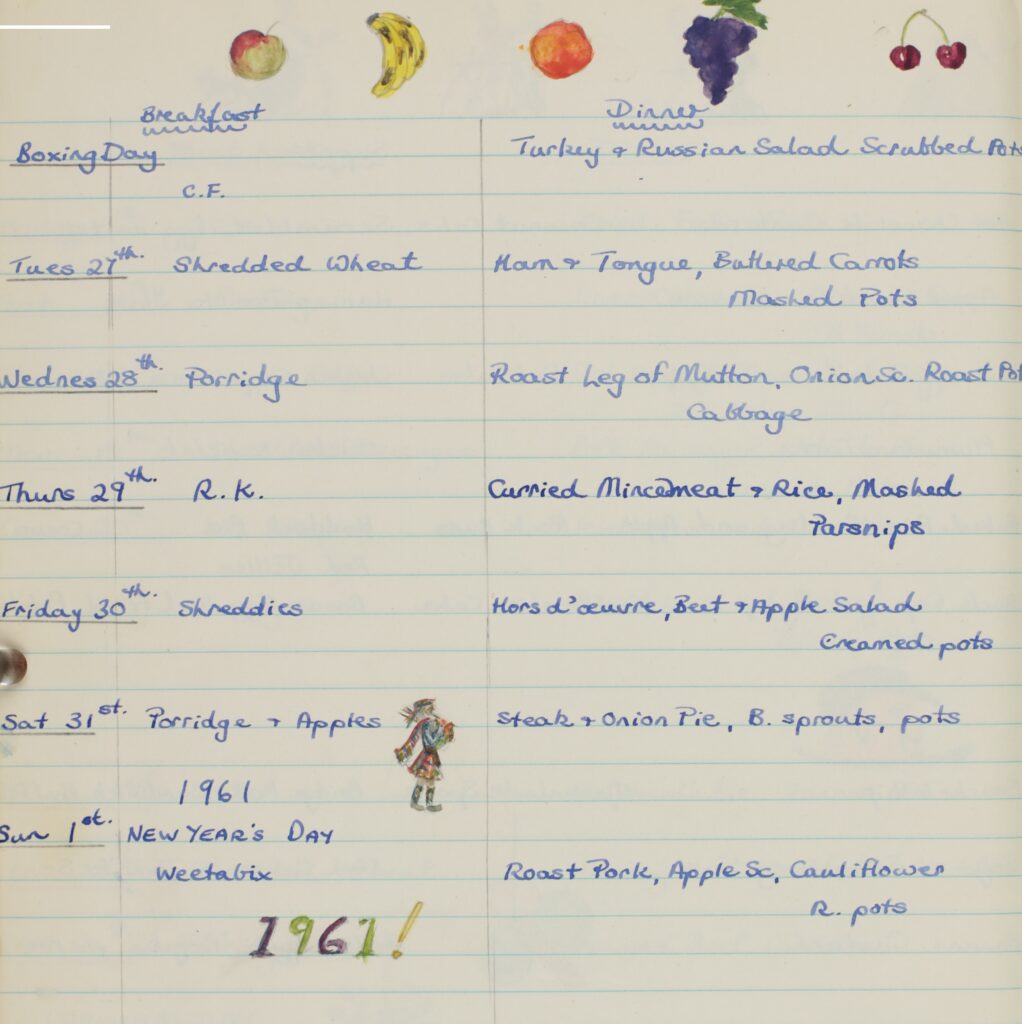 Breakfast Dinner
Boxing Day Turkey & Russian Salad Scrubbed Pots
C.F.
Tues 27th. Shredded Wheat Ham & Tongue, Buttered Carrots
Mashed Pots
Wednes 28th. Porridge Roast Leg of Mutton, Onion Sc. Roast Pot
Cabbage
Thurs 29th. R.K. Curried Mincemeat & Rice, Mashed
Parsnips
Friday 30th. Shreddies Hors d'œuvre, Beet & Apple Salad
Creamed pots
Sat 31st. Porridge & Apples Steak & Onion Pie, B. sprouts, pots
1961
Sun 1st. NEW YEAR'S DAY
Weetabix Roast Pork, Apple Sc, Cauliflower
R. pots
1961!